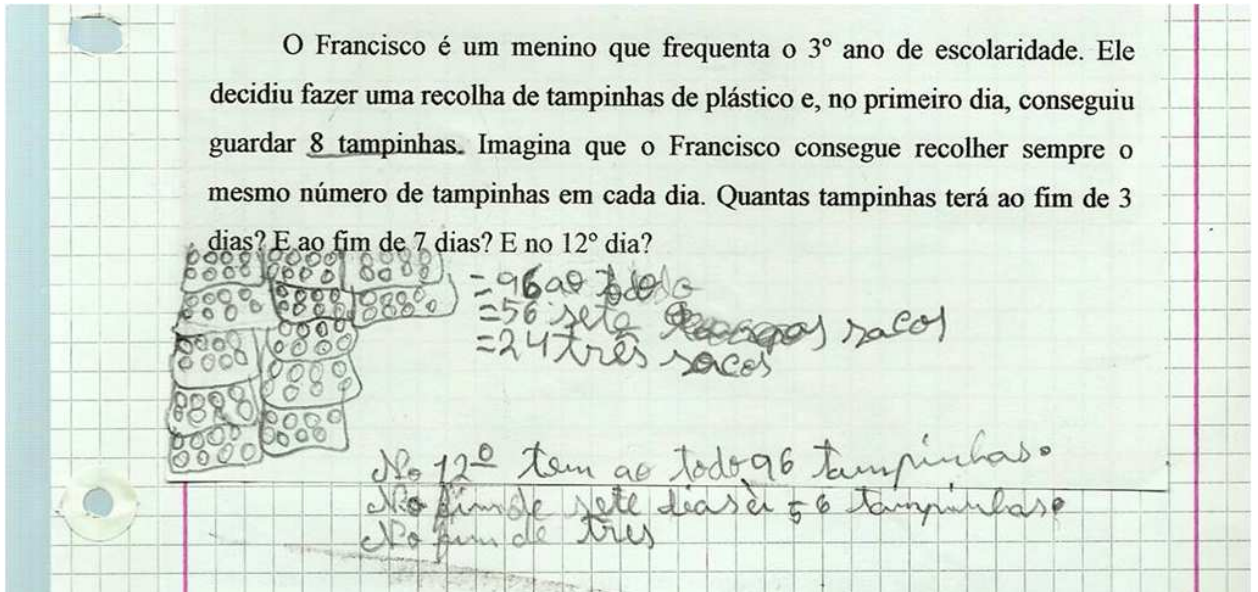 O Francisco é um menino que frequenta o 3º ano de escolaridade. Ele
decidiu fazer uma recolha de tampinhas de plástico e, no primeiro dia, conseguiu
guardar 8 tampinhas. Imagina que o Francisco consegue recolher sempre o
mesmo número de tampinhas em cada dia. Quantas tampinhas terá ao fim de 3
dias? E ao fim de 7 dias? E no 12º dia?
=96 ao todo
=56 sete sacos
=24 três sacos
No 12º tem ao todo 96 tampinhas.
No fim de sete dias é 56 tampinhas.
No fim de três